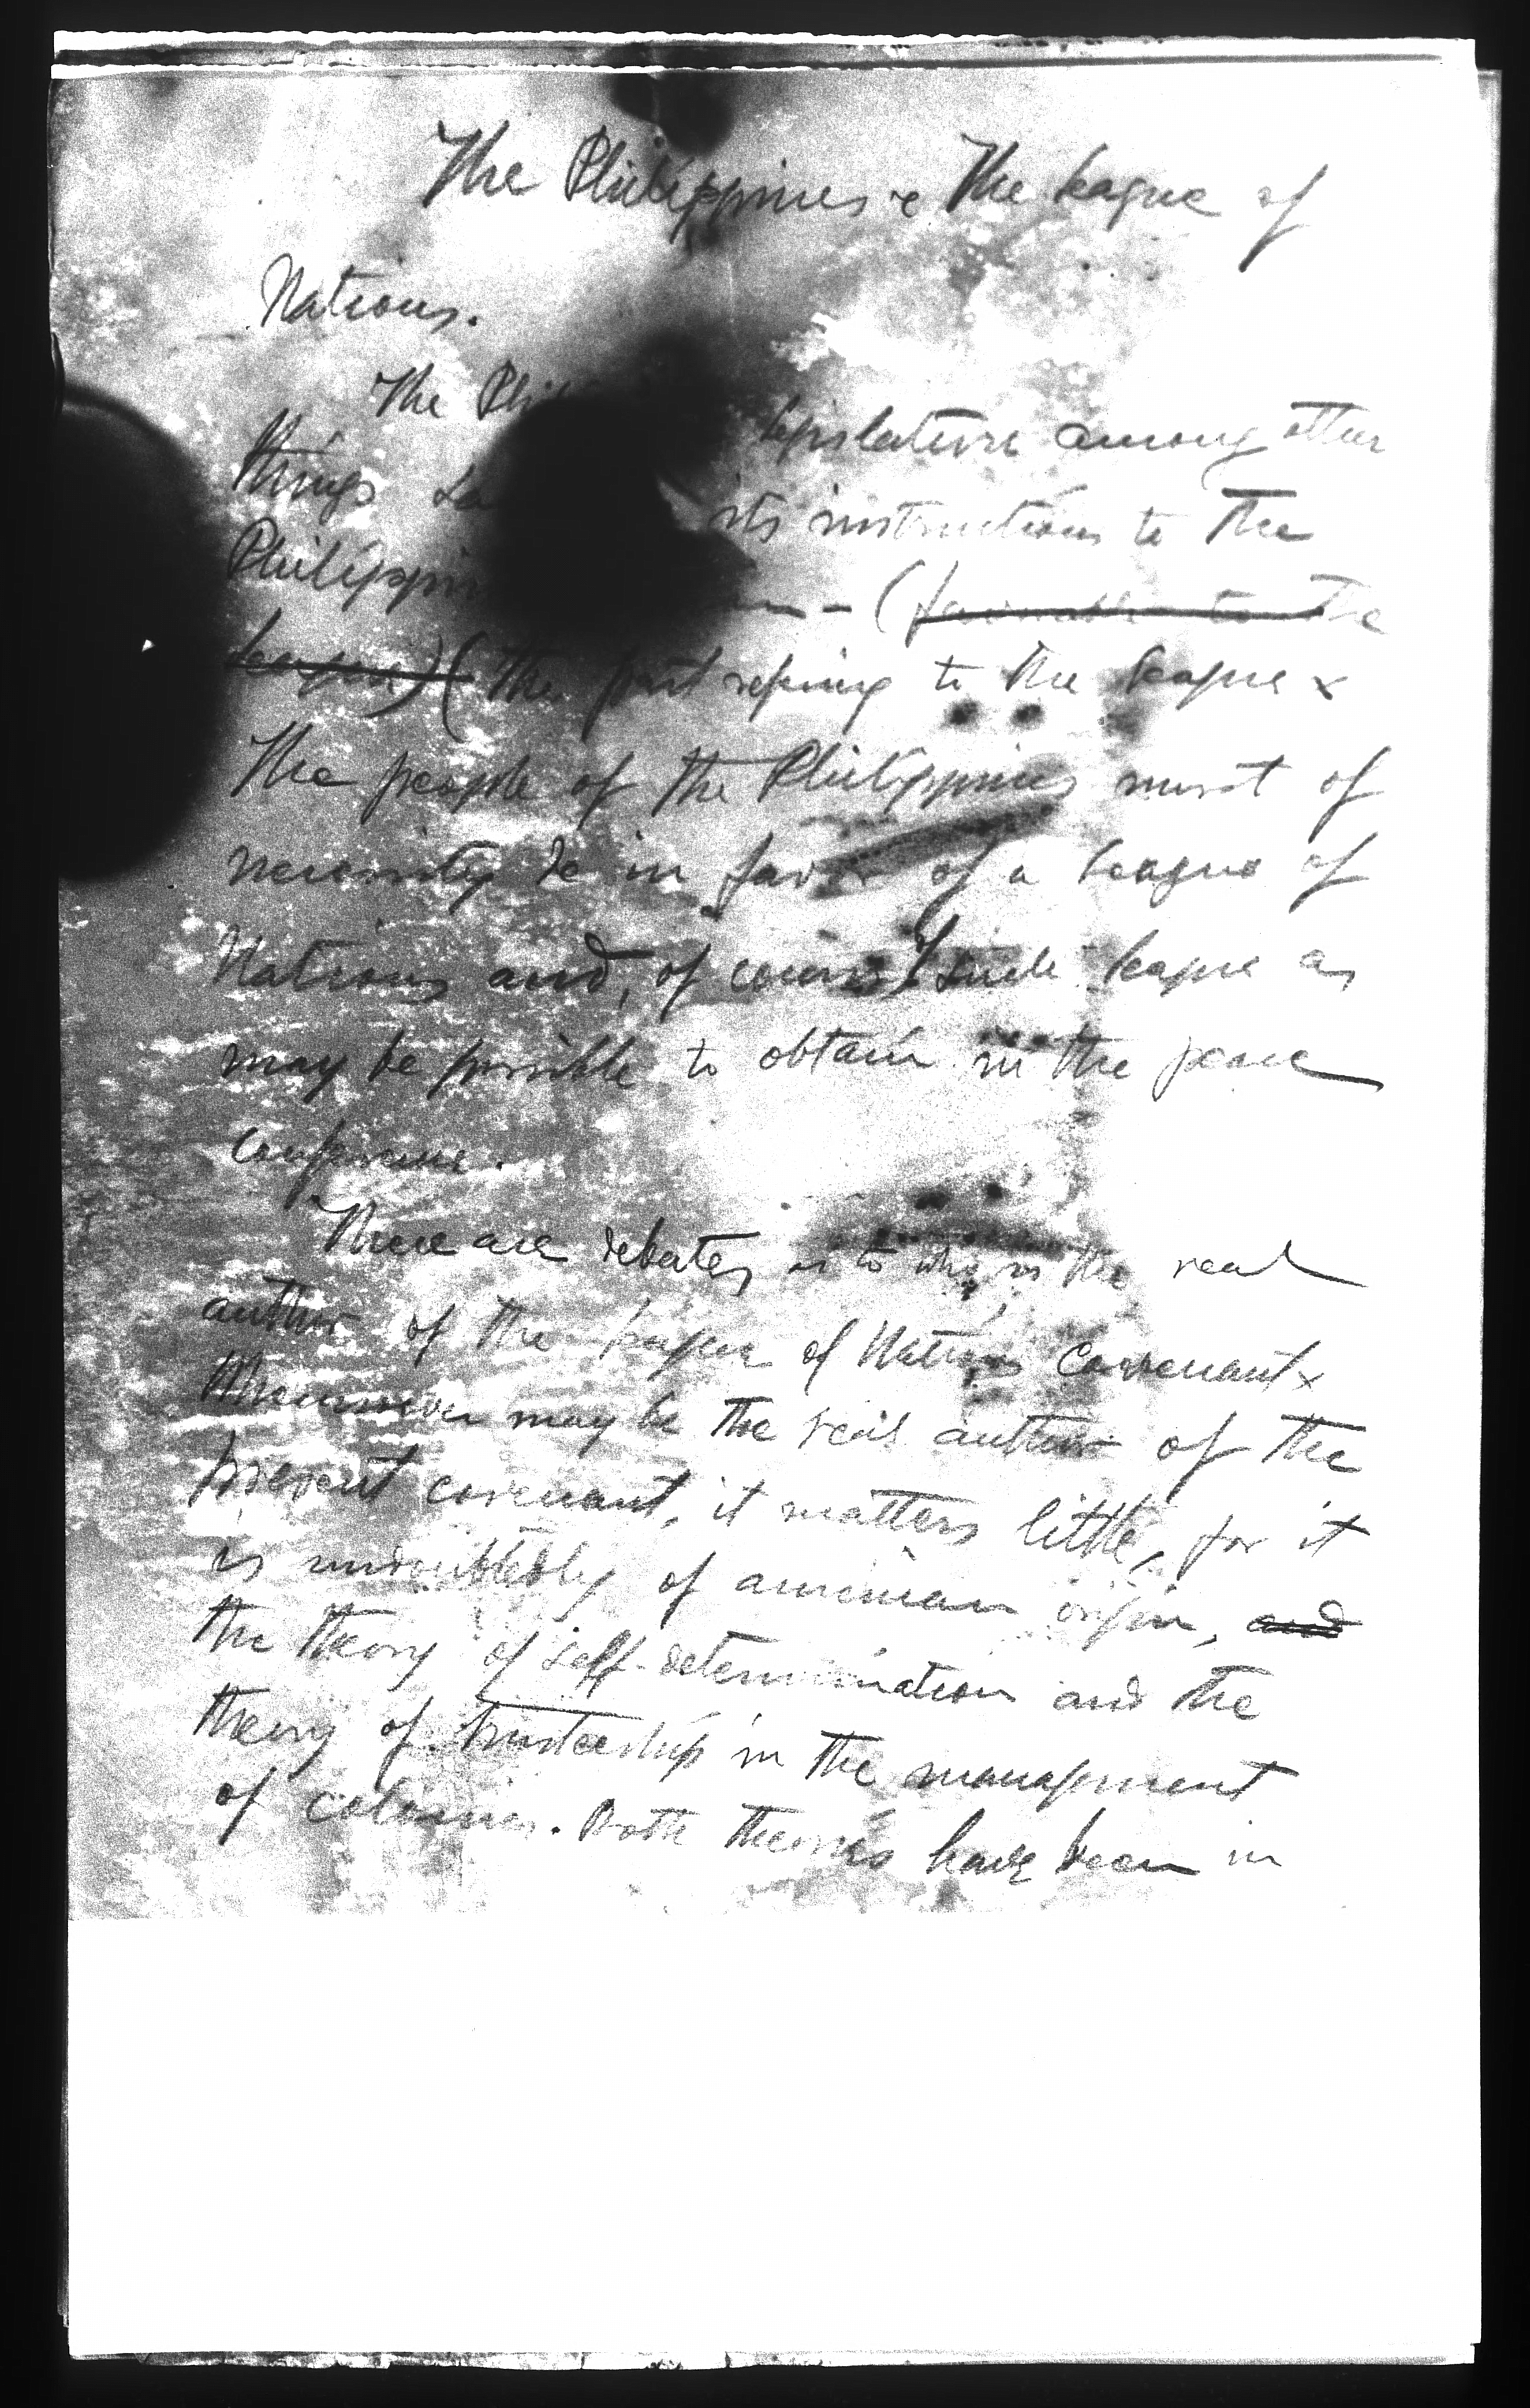 The Philippines & The League of
Nations.
The Legislature among other
things its instructions to the
Philippine - (favorable to the
League) (The part refering to the League x
The people of the Philippines must of
necessity be in favor of a League of
Nations and, of course, of such League as
may be possible to obtain in the peace
conference.
There are debates as to who is the real
author of the League of Nations Covenant x
Whomsoever may be the real author of the
present covenant, it matters little, for it
is undoubtedly of american origin, and
the theory of self-determination and the
theory of trusteeship in the management
of colonies. Both theories have been in